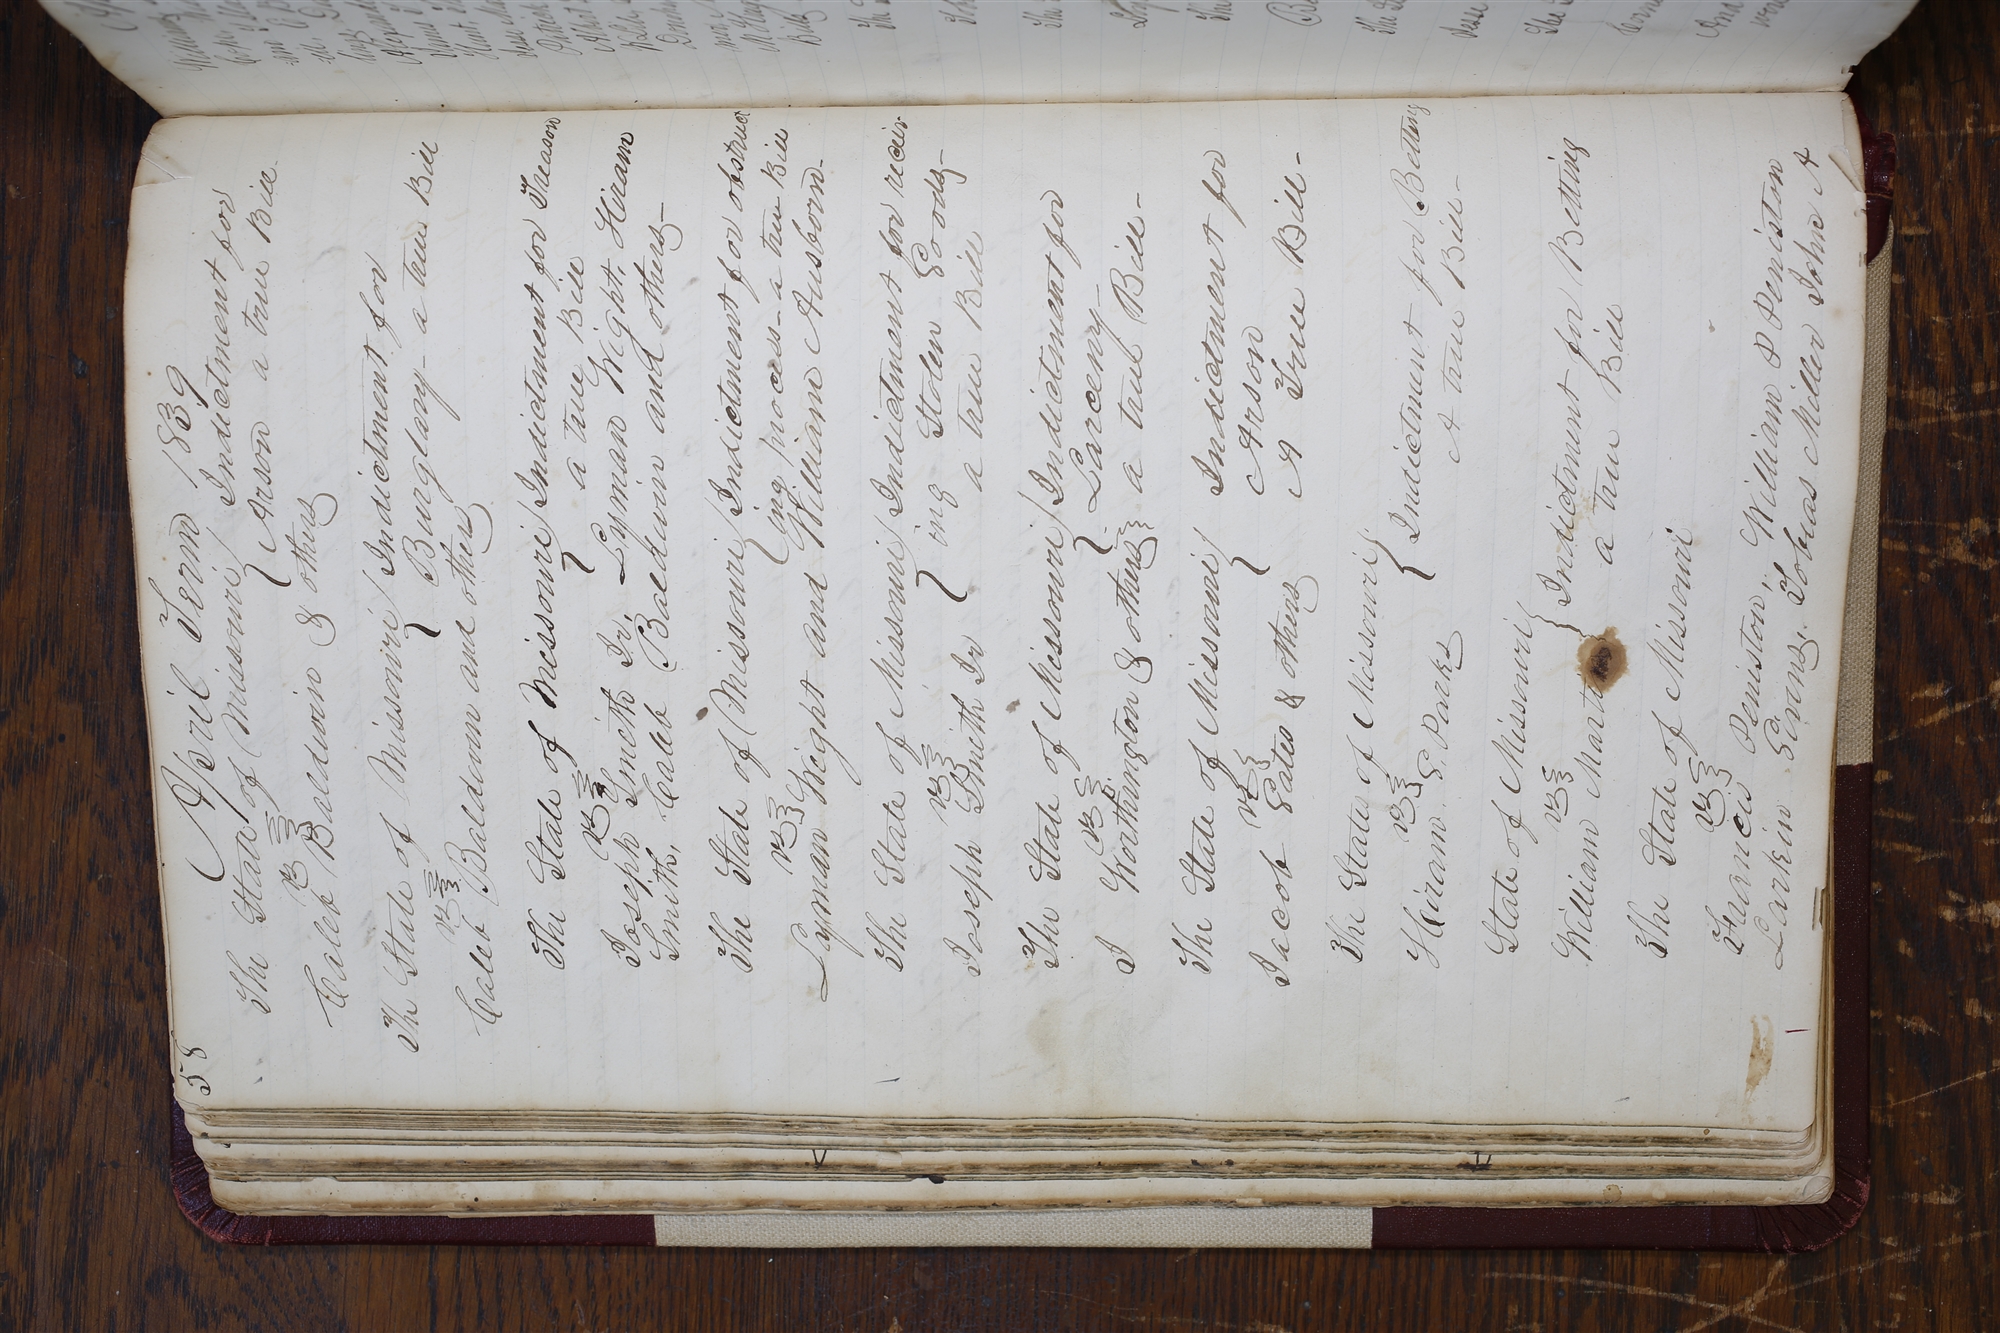 58
April Term 1839
The State of Missouri } Indictment for
vs } Arson a true Bill
Caleb Baldwin & others
The State of Missouri } Indictment for
vs } Burglary - a true Bill
Caleb Baldwin and others
The State of Missouri } Indictment for Treason
vs } a true Bill
Joseph Smith Jr, Lyman Wight, Hiram
Smith, Caleb Baldwin and others
The State of Missouri } Indictment for obstruct
vs } ing process - a true Bill
Lyman Wight and William Ausborn
The State of Missouri } Indictment for reciev
vs } ing Stolen Goods
Joseph Smith Jr a true Bill
The State of Missouri } Indictment for
vs } Larceny
J Worthington & others a true Bill
The State of Missouri } Indictment for
vs } Arson
Jacob Gates & others A True Bill
The State of Missouri } Indictment for Betting
vs } A true Bill
Hiram G. Parks
State of Missouri } Indictment for Betting
vs } a true Bill
William Mart
The State of Missouri
vs
Francis Peniston, William P Peniston
Larkin Givens, Tobias Miller John A